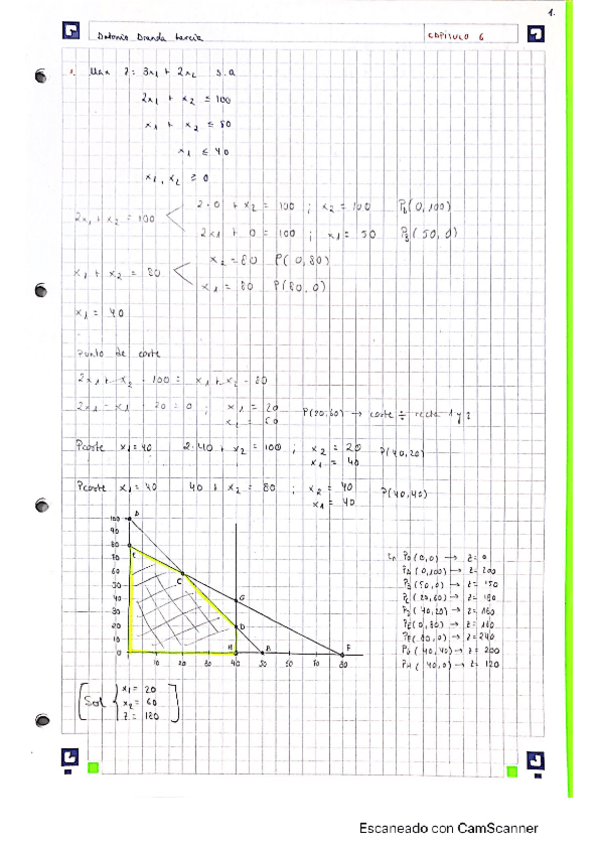 1.
CAPITULO 6
1. Max Z = 3x1 + 2x2 s.a
2x1 + x2 ≤ 100
x1 + x2 ≤ 80
x1 ≤ 40
x1, x2 ≥ 0
2x1 + x2 = 100
2·0 + x2 = 100 ; x2 = 100 (0,100)
2x1 + 0 = 100 ; x1 = 50 (50,0)
x1 + x2 = 80
x2 = 80 P(0,80)
x1 = 80 P(80,0)
x1 = 40
Punto de corte
2x1 + x2 - 100 = x1 + x2 - 80
2x1 - x1 - 20 = 0 ; x1 = 20
x2 = 60
P(20,60) → corte ÷ recta 1 y 2
Pcorte x1 = 40 2·40 + x2 = 100 ; x2 = 20
x1 = 40
P(40,20)
Pcorte x1 = 40 40 + x2 = 80 ; x2 = 40
x1 = 40
P(40,40)
100
90
80
70
60
50
40
30
20
10
0
C
G
D
F
10 20 30 40 50 60 70 80
(0,0) → Z = 0
(0,100) → Z = 200
(50,0) → Z = 150
(20,60) → Z = 180
(40,20) → Z = 160
(0,80) → Z = 160
(80,0) → Z = 240
(40,40) → Z = 200
(40,0) → Z = 120
Sol
x1 = 20
x2 = 60
Escaneado con CamScanner